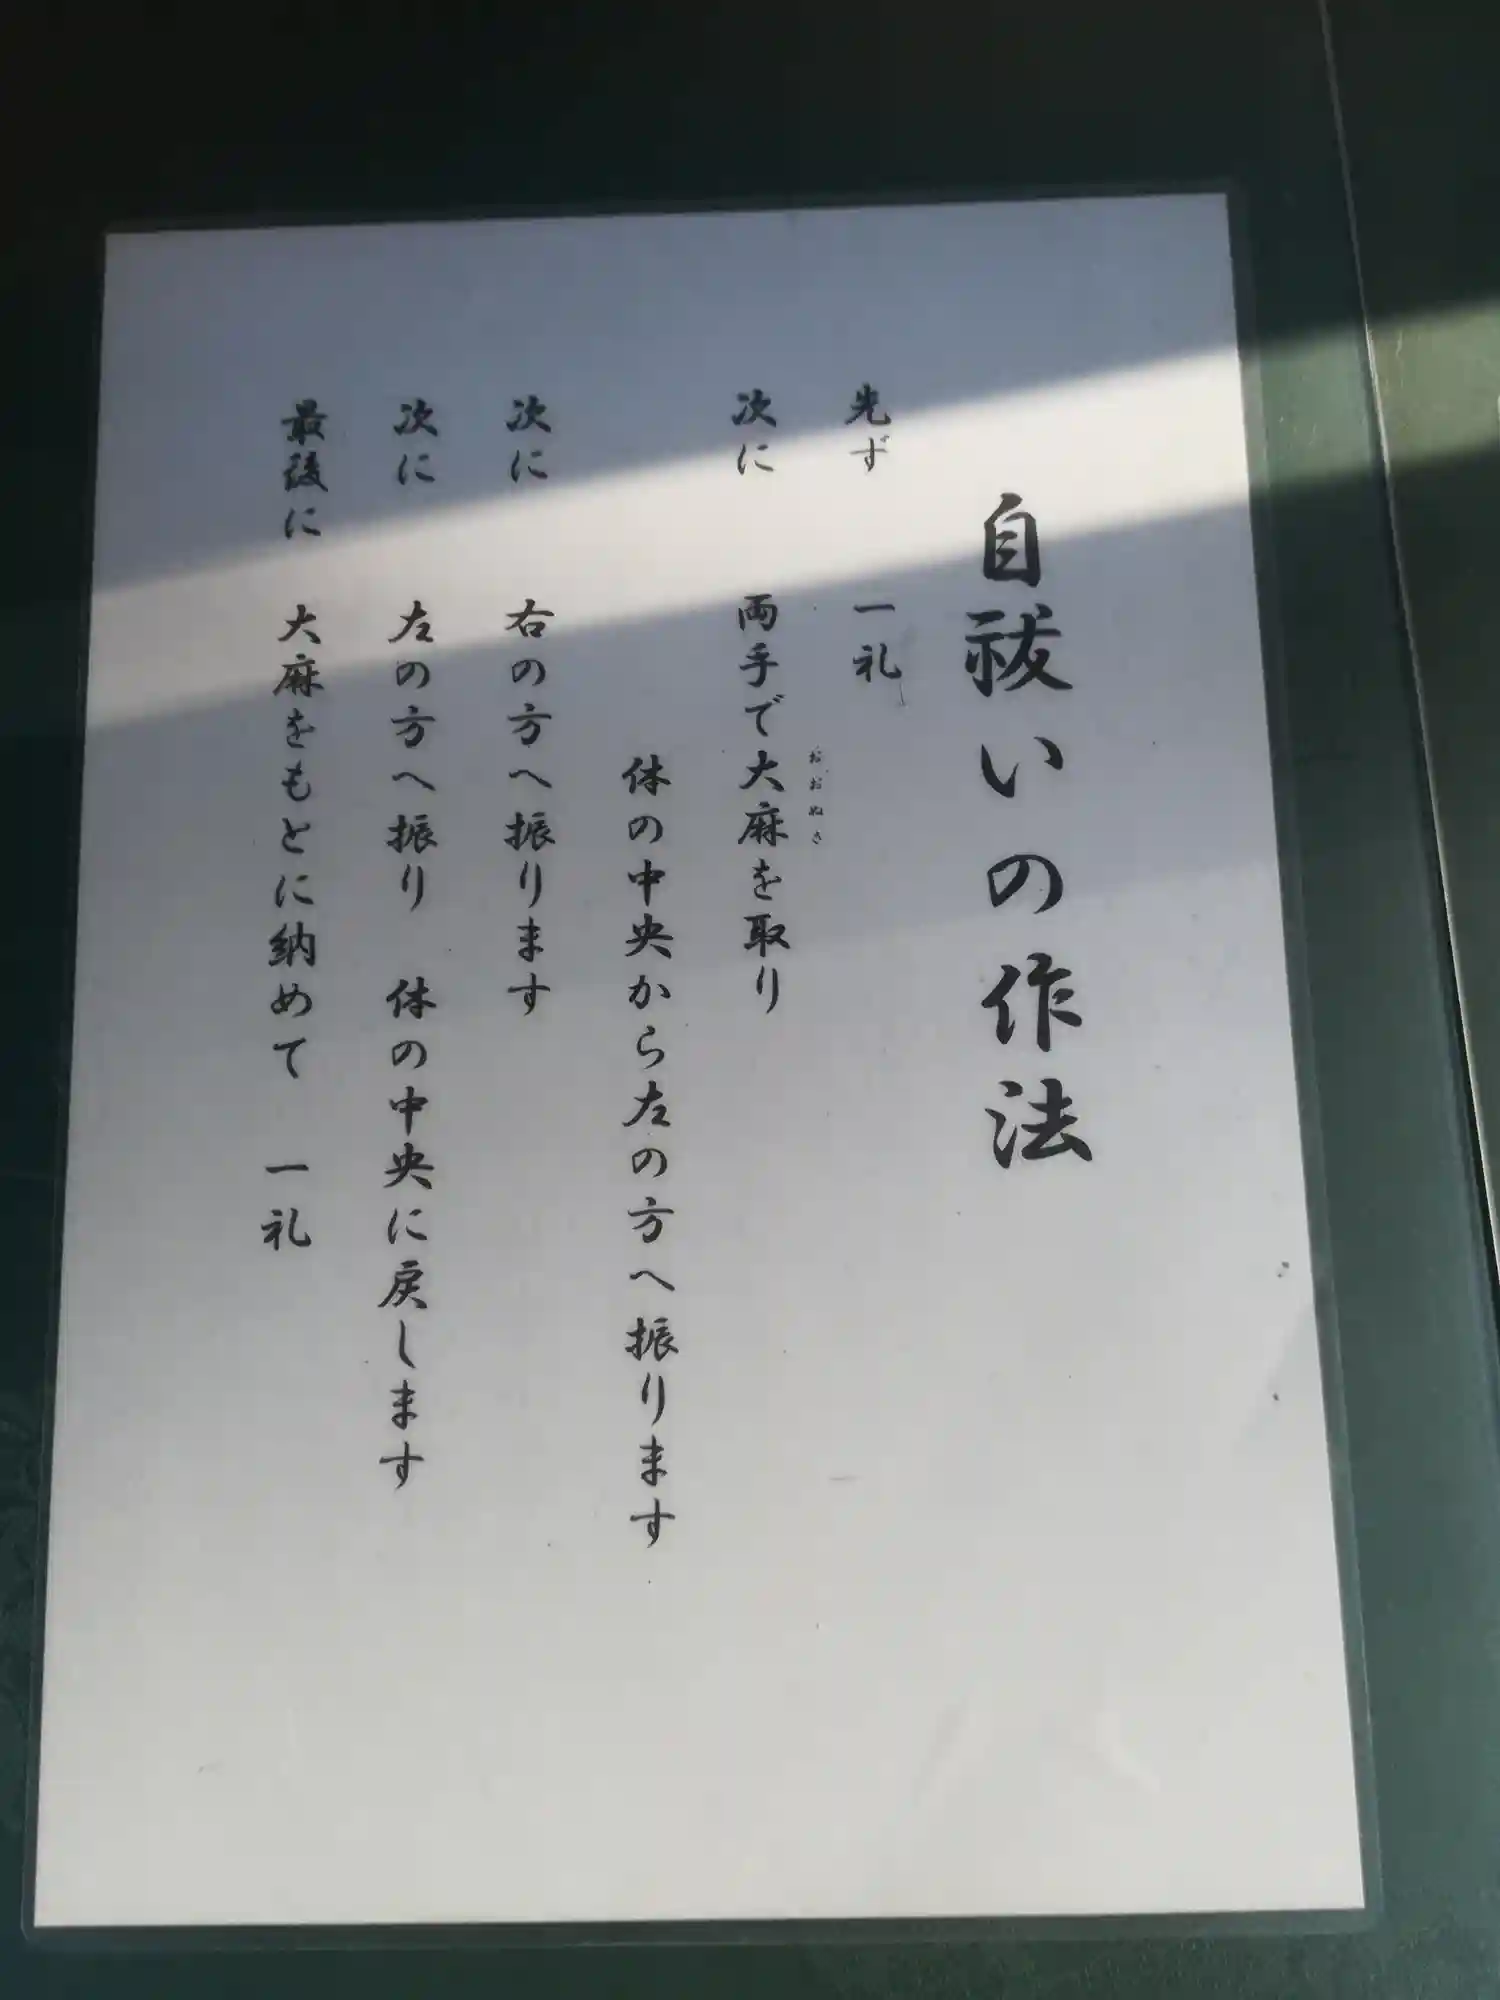 自祓いの作法
先ず 一礼
次に 両手で大麻を取り
おおぬさ
体の中央から左の方へ振ります
次に 右の方へ振ります
次に 左の方へ振り 体の中央に戻します
最後に 大麻をもとに納めて 一礼